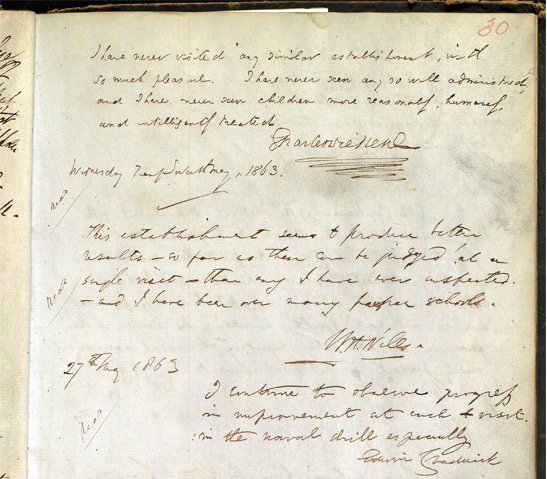 30
I have never visited any similar establishment, with
so much pleasure. I have never seen any so well administered,
and I have never seen children more reasonably, humanely,
and intelligently treated
Charles Dickens
Wednesday Twentieth May, 1863.
read
This establishment seems to produce better
results – so far as they can be judged at a
single visit – than any I have ever inspected.
– and I have been over many pauper schools.
read
W. H. Wills.
27th May 1863
I continue to observe progress
in improvement at each visit
in the naval drill especially
Edwin Chadwick
read